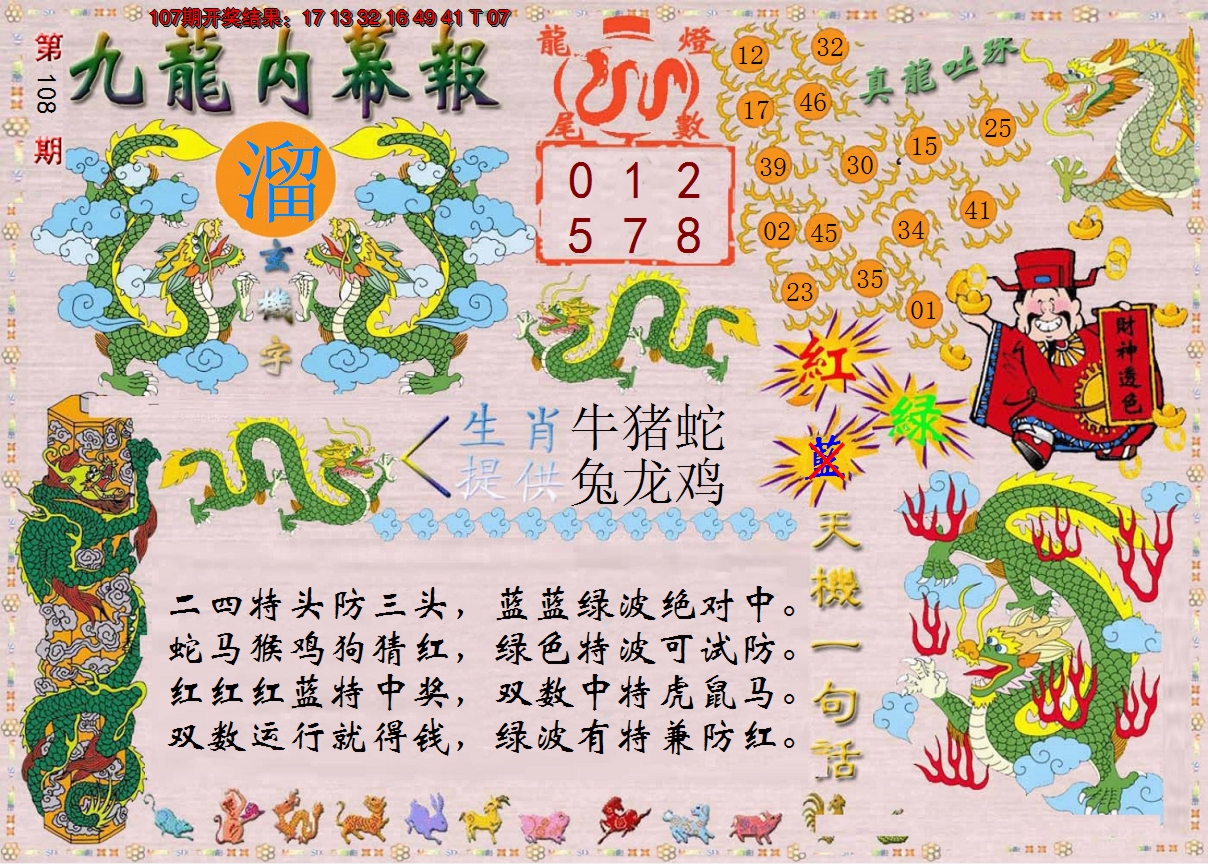 107期开奖结果：17 13 32 16 49 41 T 07
第108期
九龍内幕報
溜
玄機字
龍燈尾數
0 1 2
5 7 8
真龍吐珠
12 32
17 46
39 30 15 25
02 45 34 41
23 35 01
財神透色
紅
绿
蓝
生肖 牛猪蛇
提供 兔龙鸡
天機一句話
二四特头防三头，蓝蓝绿波绝对中。
蛇马猴鸡狗猜红，绿色特波可试防。
红红红蓝特中奖，双数中特虎鼠马。
双数运行就得钱，绿波有特兼防红。